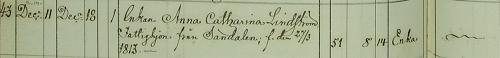 43 Dec. 11 Dec. 18 1 Enkan Anna Catharina Lindström
Fattighjon från Sandalen, f. den 27/3 51 8 14 Enka
1813. —